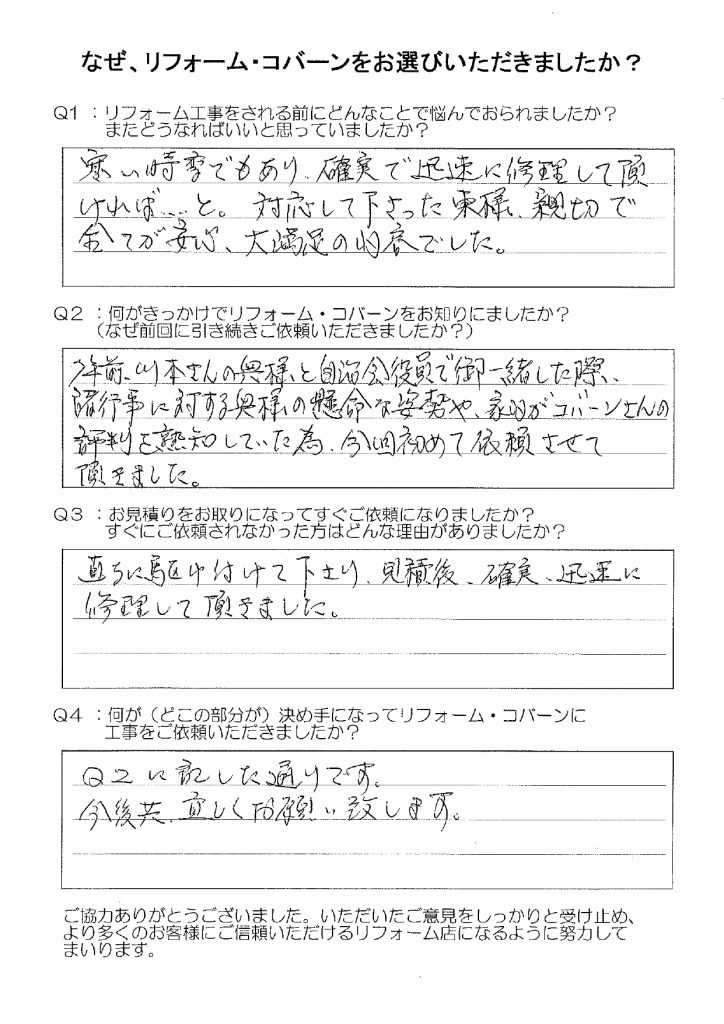 なぜ、リフォーム・コバーンをお選びいただきましたか？
Q1 ：リフォーム工事をされる前にどんなことで悩んでおられましたか？
またどうなればいいと思っていましたか？
寒い時季でもあり、確実で迅速に修理して頂
ければ…と。対応して下さった東様、親切で
全てが安心、大満足の内容でした。
Q2 ：何がきっかけでリフォーム・コバーンをお知りにましたか？
（なぜ前回に引き続きご依頼いただきましたか？）
2年前、川本さんの奥様と自治会役員で御一緒した際、
諸行事に対する奥様の懸命な姿勢や、家内がコバーンさんの
評判を熟知していた為、今回初めて依頼させて
頂きました。
Q3 ：お見積りをお取りになってすぐご依頼になりましたか？
すぐにご依頼されなかった方はどんな理由がありましたか？
直ちに駆け付けて下さり、見積後、確実、迅速に
修理して頂きました。
Q4 ：何が（どこの部分が）決め手になってリフォーム・コバーンに
工事をご依頼いただきましたか？
Q2に記した通りです。
今後共、宜しくお願い致します。
ご協力ありがとうございました。いただいたご意見をしっかりと受け止め、
より多くのお客様にご信頼いただけるリフォーム店になるように努力して
まいります。